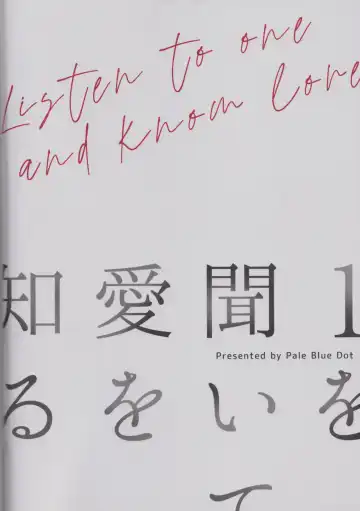 Listen to one
and know love
1を
聞いて
愛を
知る
Presented by Pale Blue Dot